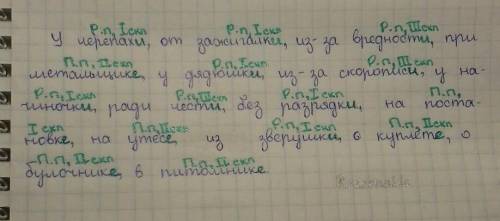 Р.п, I скл Р.п, I скл Р.п, III скл
У черепахи, от зажигалки, из-за вредности, при
П.п, II скл Р.п, I скл Р.п, III скл
метальщике, у дядюшки, из-за скорописи, у на-
Р.п, I скл Р.п, III скл Р.п, I скл П.п,
чиночки, ради чести, без разрядки, на поста-
I скл П.п, II скл Р.п, I скл П.п, II скл
новке, на утесе, из зверушки, в куплете, о
П.п, II скл П.п, II скл
булочнике, в питомнике.